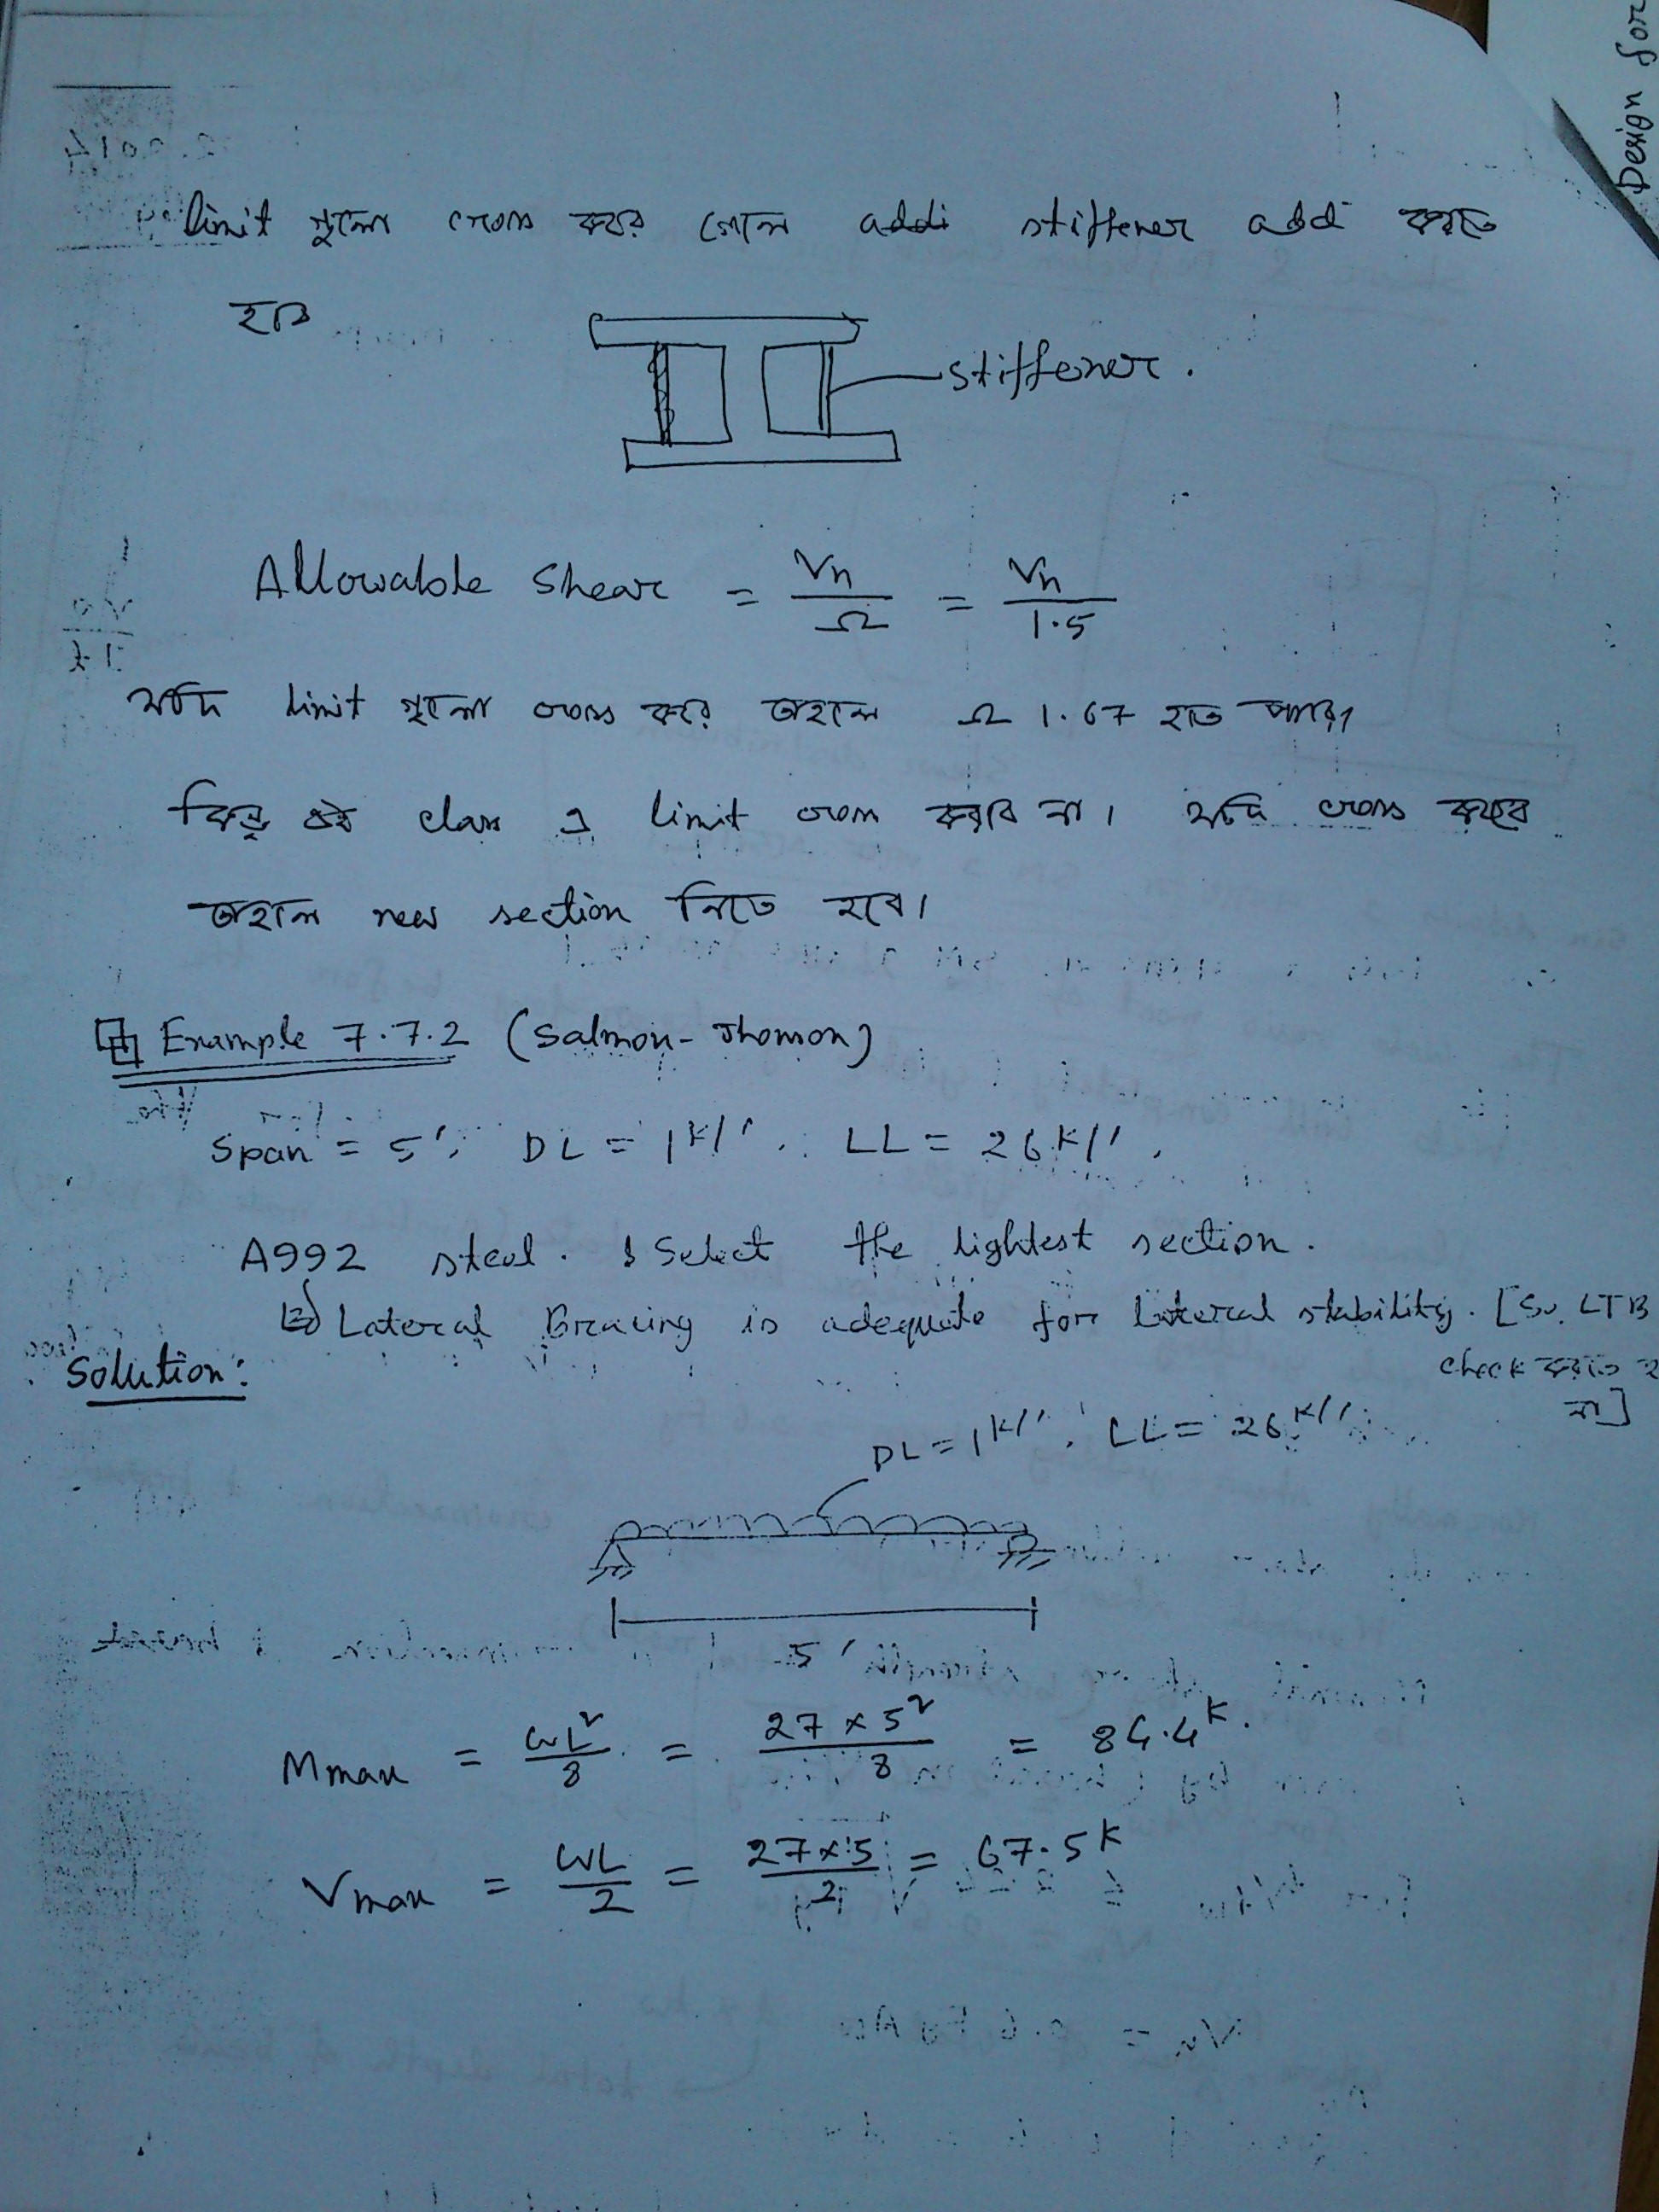 Design for
limit গুলো cross করে গেলে addi stiffener add করতে
হবে
stiffener.
Allowable Shear = Vn/Ω = Vn/1.5
যদি limit গুলো cross করে তাহলে Ω 1.67 হতে পারে,
কিন্তু এই class এ limit cross করবে না। যদি cross করবে
তাহলে new section নিতে হবে।
Example 7.7.2 (Salmon-Jhonson)
Span = 5', DL = 1 K/', LL = 26 K/',
A992 steel. Select the lightest section.
Lateral Bracing is adequate for lateral stability. [So, LTB
check করতে
না]
Solution:
DL = 1 K/', LL = 26 K/'
5'
Mmax = WL²/8 = 27 × 5²/8 = 84.4 K.
Vmax = WL/2 = 27×5/2 = 67.5 K